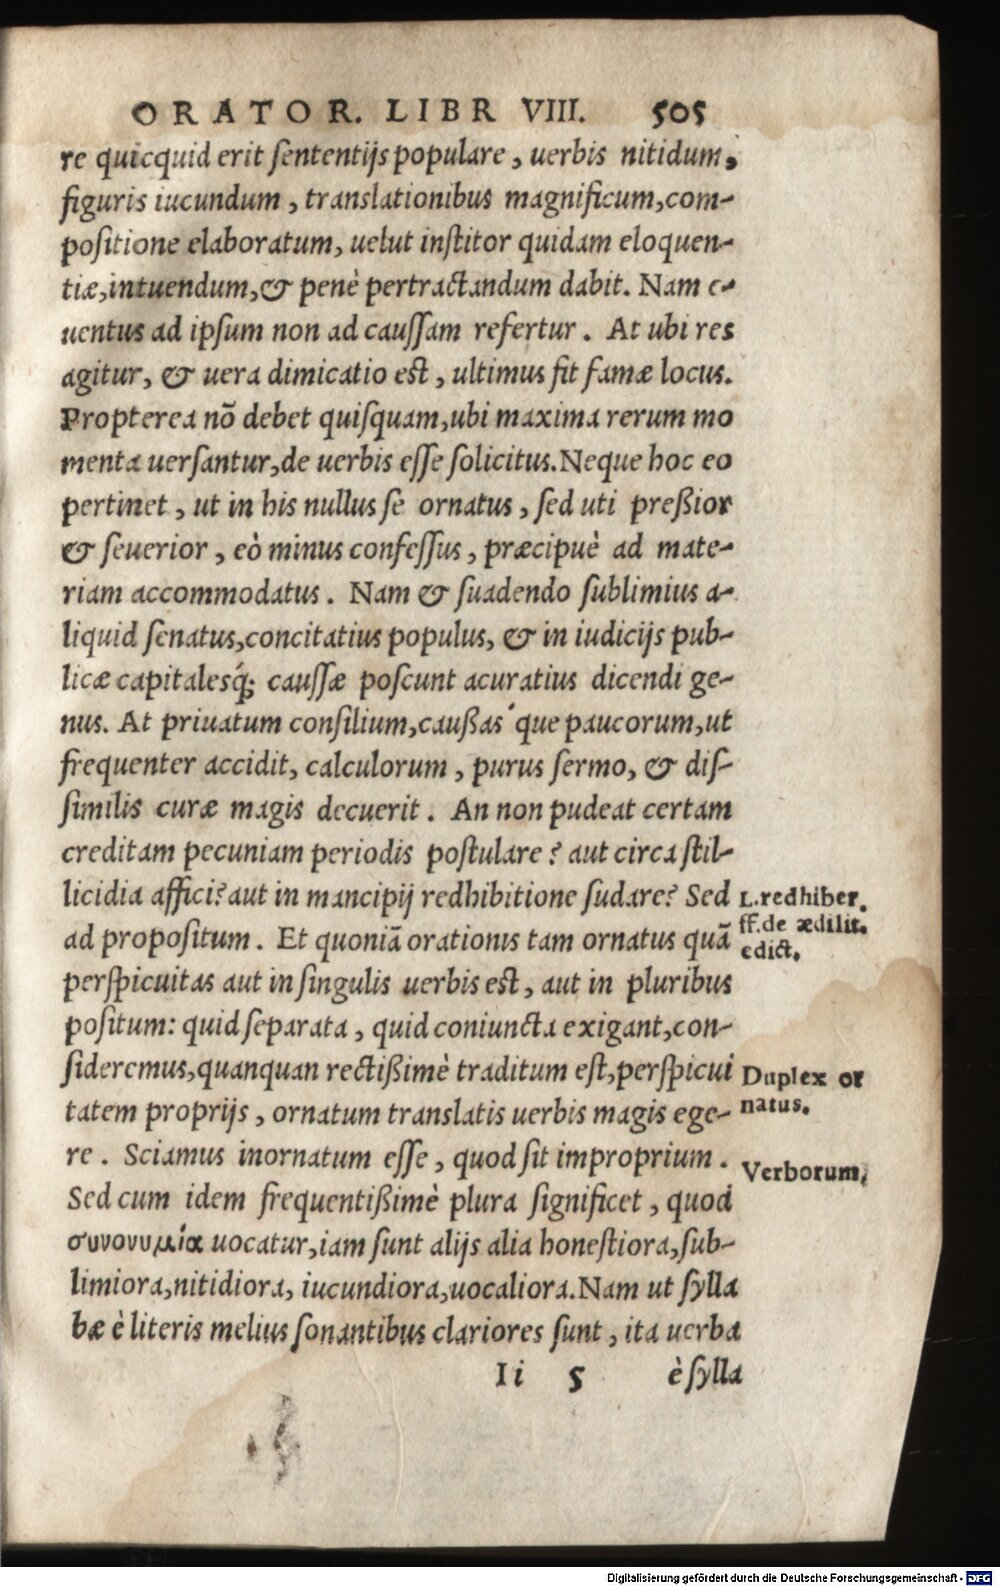 ORATOR. LIBR VIII. 505
re quicquid erit sententijs populare, uerbis nitidum,
figuris iucundum, translationibus magnificum, com-
positione elaboratum, uelut institor quidam eloquen-
tiæ, intuendum, & penè pertractandum dabit. Nam e-
uentus ad ipsum non ad caussam refertur. At ubi res
agitur, & uera dimicatio est, ultimus sit famæ locus.
Propterea nō debet quisquam, ubi maxima rerum mo
menta uersantur, de uerbis esse solicitus. Neque hoc eo
pertinet, ut in his nullus se ornatus, sed uti preßior
& seuerior, eò minus confessus, præcipuè ad mate-
riam accommodatus. Nam & suadendo sublimius a-
liquid senatus, concitatius populus, & in iudicijs pub-
licæ capitalesq́; caussæ poscunt acuratius dicendi ge-
nus. At priuatum consilium, caußas que paucorum, ut
frequenter accidit, calculorum, purus sermo, & dis-
similis curæ magis decuerit. An non pudeat certam
creditam pecuniam periodis postulare? aut circa stil-
licidia affici? aut in mancipij redhibitione sudare? Sed
L. redhiber.
ad propositum. Et quoniā orationis tam ornatus quā
ff. de ædilit.
edict.
perspicuitas aut in singulis uerbis est, aut in pluribus
positum: quid separata, quid coniuncta exigant, con-
sideremus, quanquan rectißimè traditum est, perspicui
Duplex or
tatem proprijs, ornatum translatis uerbis magis ege-
natus.
re. Sciamus inornatum esse, quod sit improprium.
Verborum.
Sed cum idem frequentißimè plura significet, quod
συνονυμία uocatur, iam sunt alijs alia honestiora, sub-
limiora, nitidiora, iucundiora, uocaliora. Nam ut sylla
bæ è literis melius sonantibus clariores sunt, ita uerba
Ii 5 è sylla
Digitalisierung gefördert durch die Deutsche Forschungsgemeinschaft - DFG